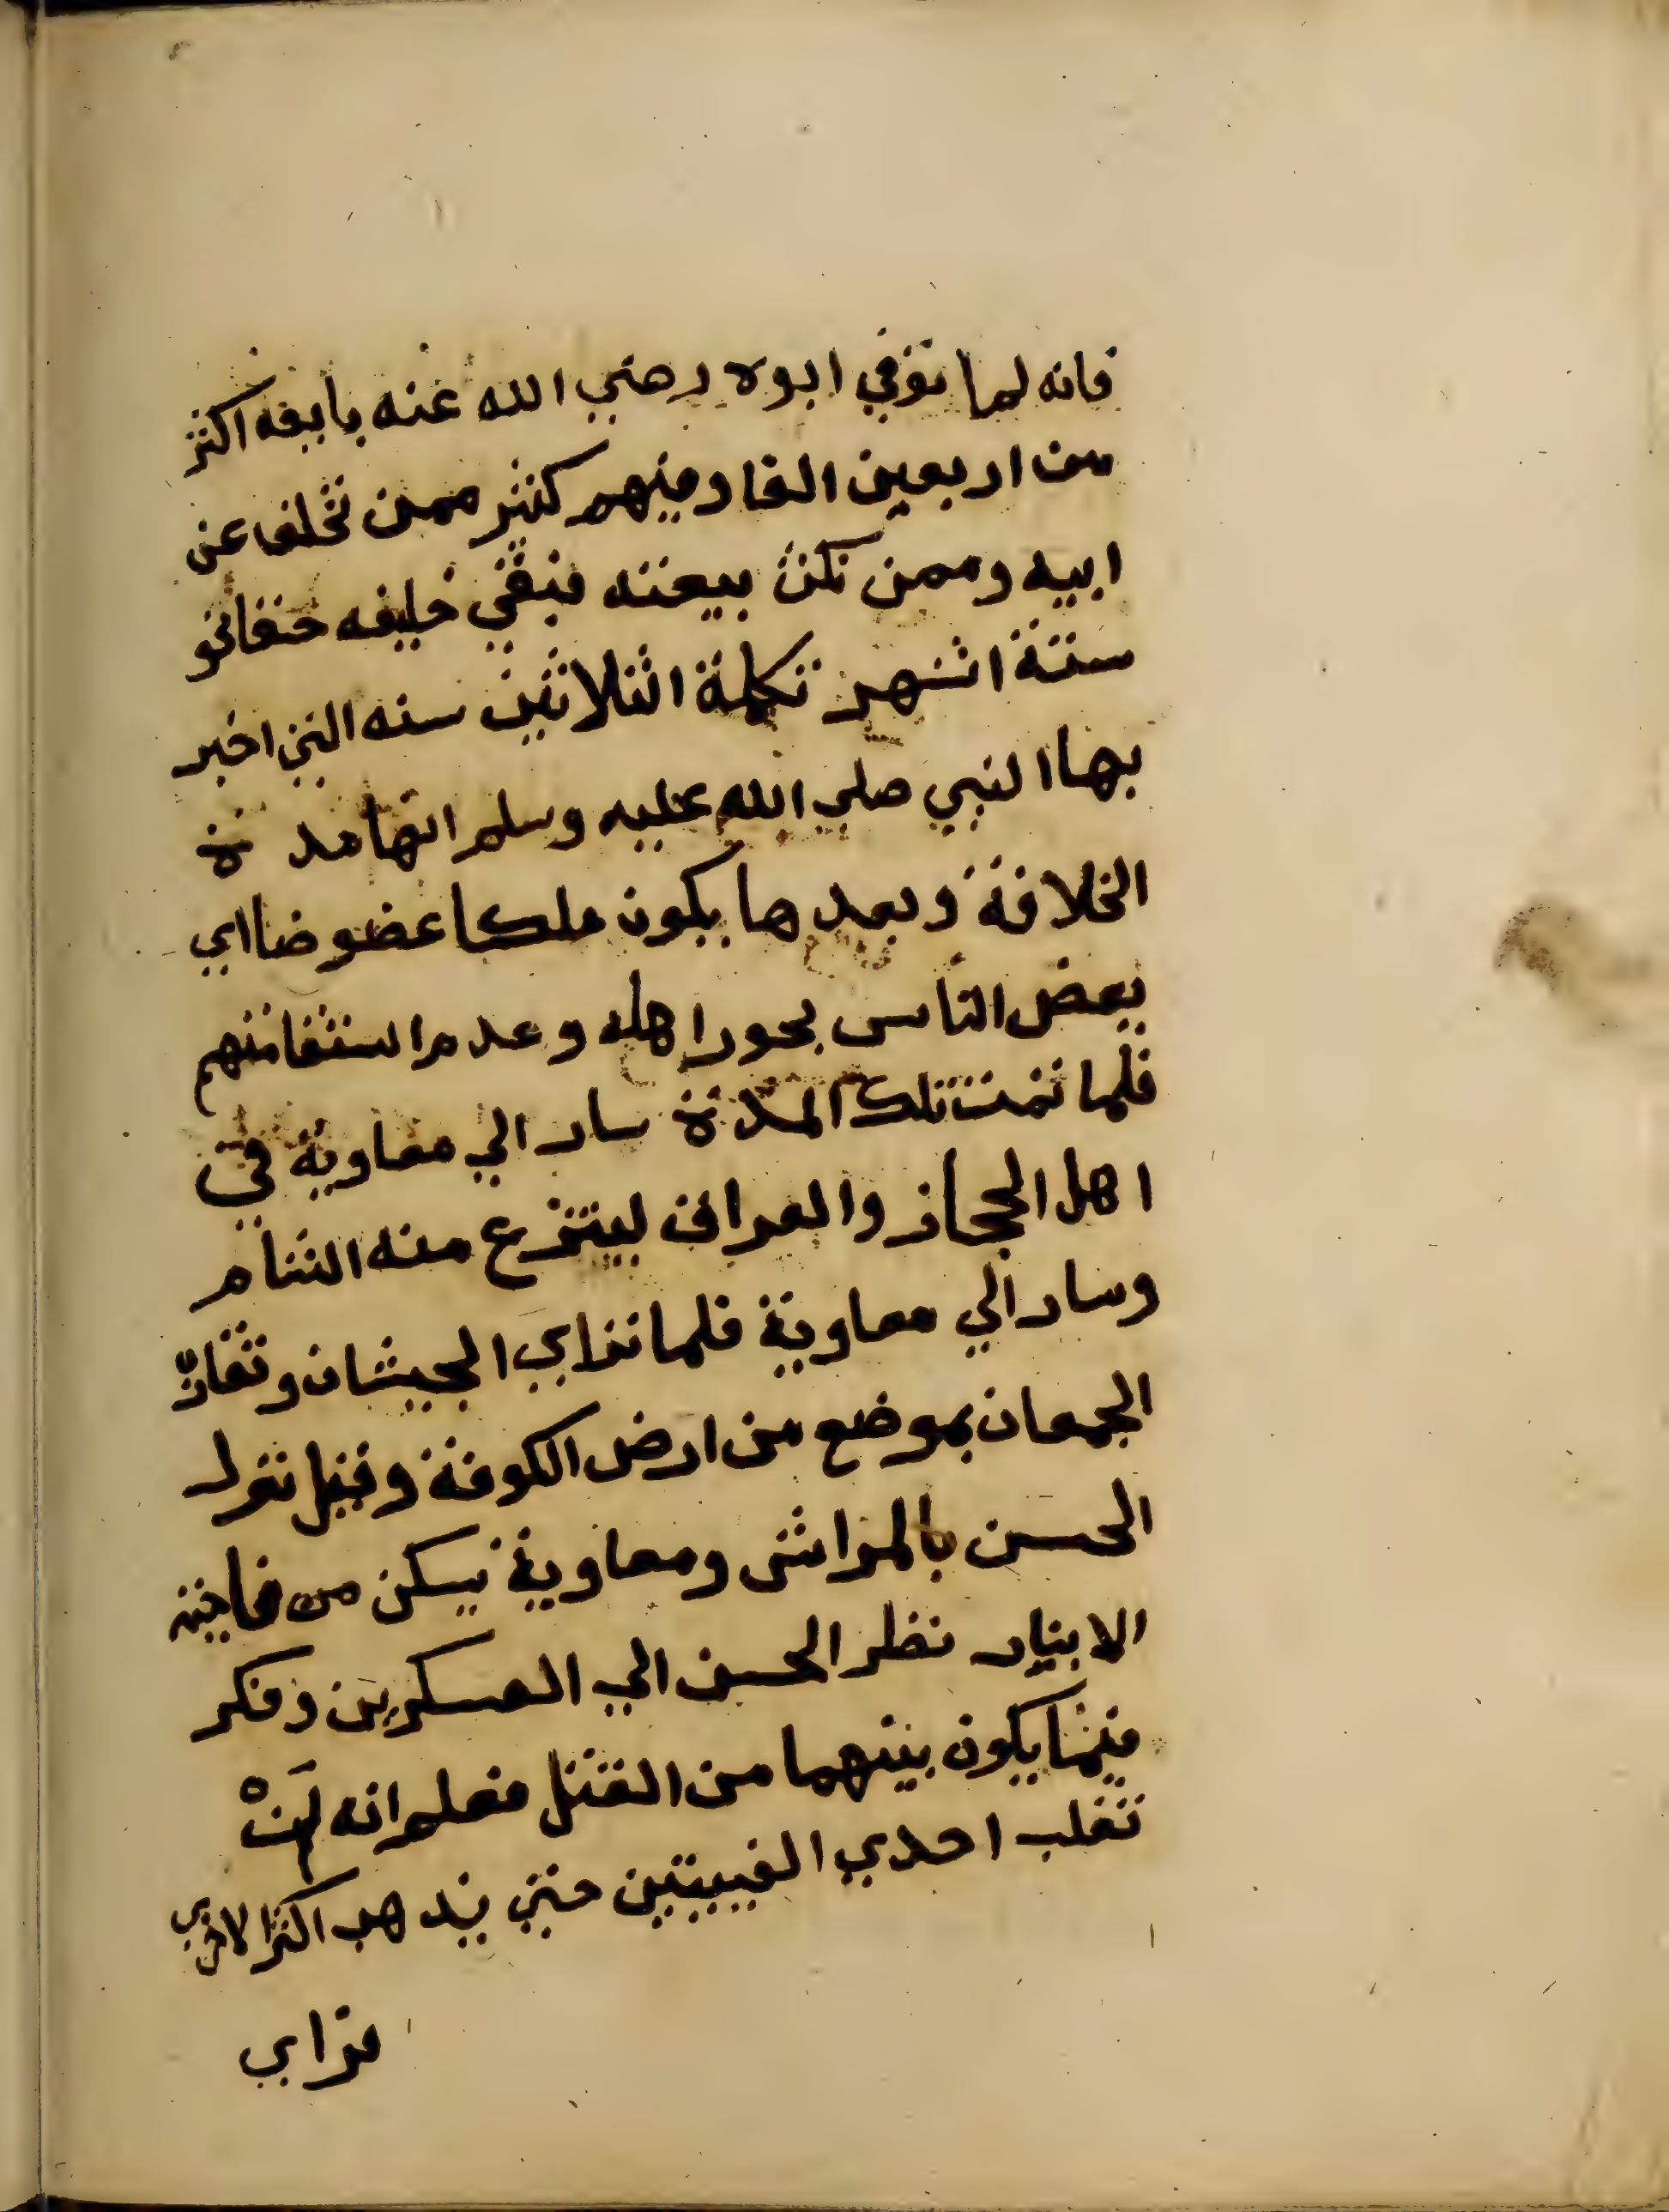 فانه لما توفي ابوه رضي الله عنه بايعه اكثر
من اربعين الفا ومنهم كثير ممن تخلف عن
ابيه وممن نكث بيعته فبقي خليفه حقا نحو
ستة اشهر تكملة الثلاثين سنه التي اخبر
بها النبي صلي الله عليه وسلم انها مدة
الخلافة وبعدها يكون ملكا عضوضا اي
يعض الناس بجور اهله وعدم استقامتهم
فلما تمت تلك المدة سار الي معاوية في
اهل الحجاز والعراق لينتزع منه الشام
وسار الي معاوية فلما تراي الجيشان وتقارب
الجمعان بموضع من ارض الكوفة وقيل نزل
الحسن بالمدائن ومعاوية بمسكن من ناحية
الانبار نظر الحسن الي العسكرين وفكر
فيما يكون بينهما من القتل فعلم انه لن
تغلب احدي الفيتين حتي يذهب اكثر الاخري
فراي